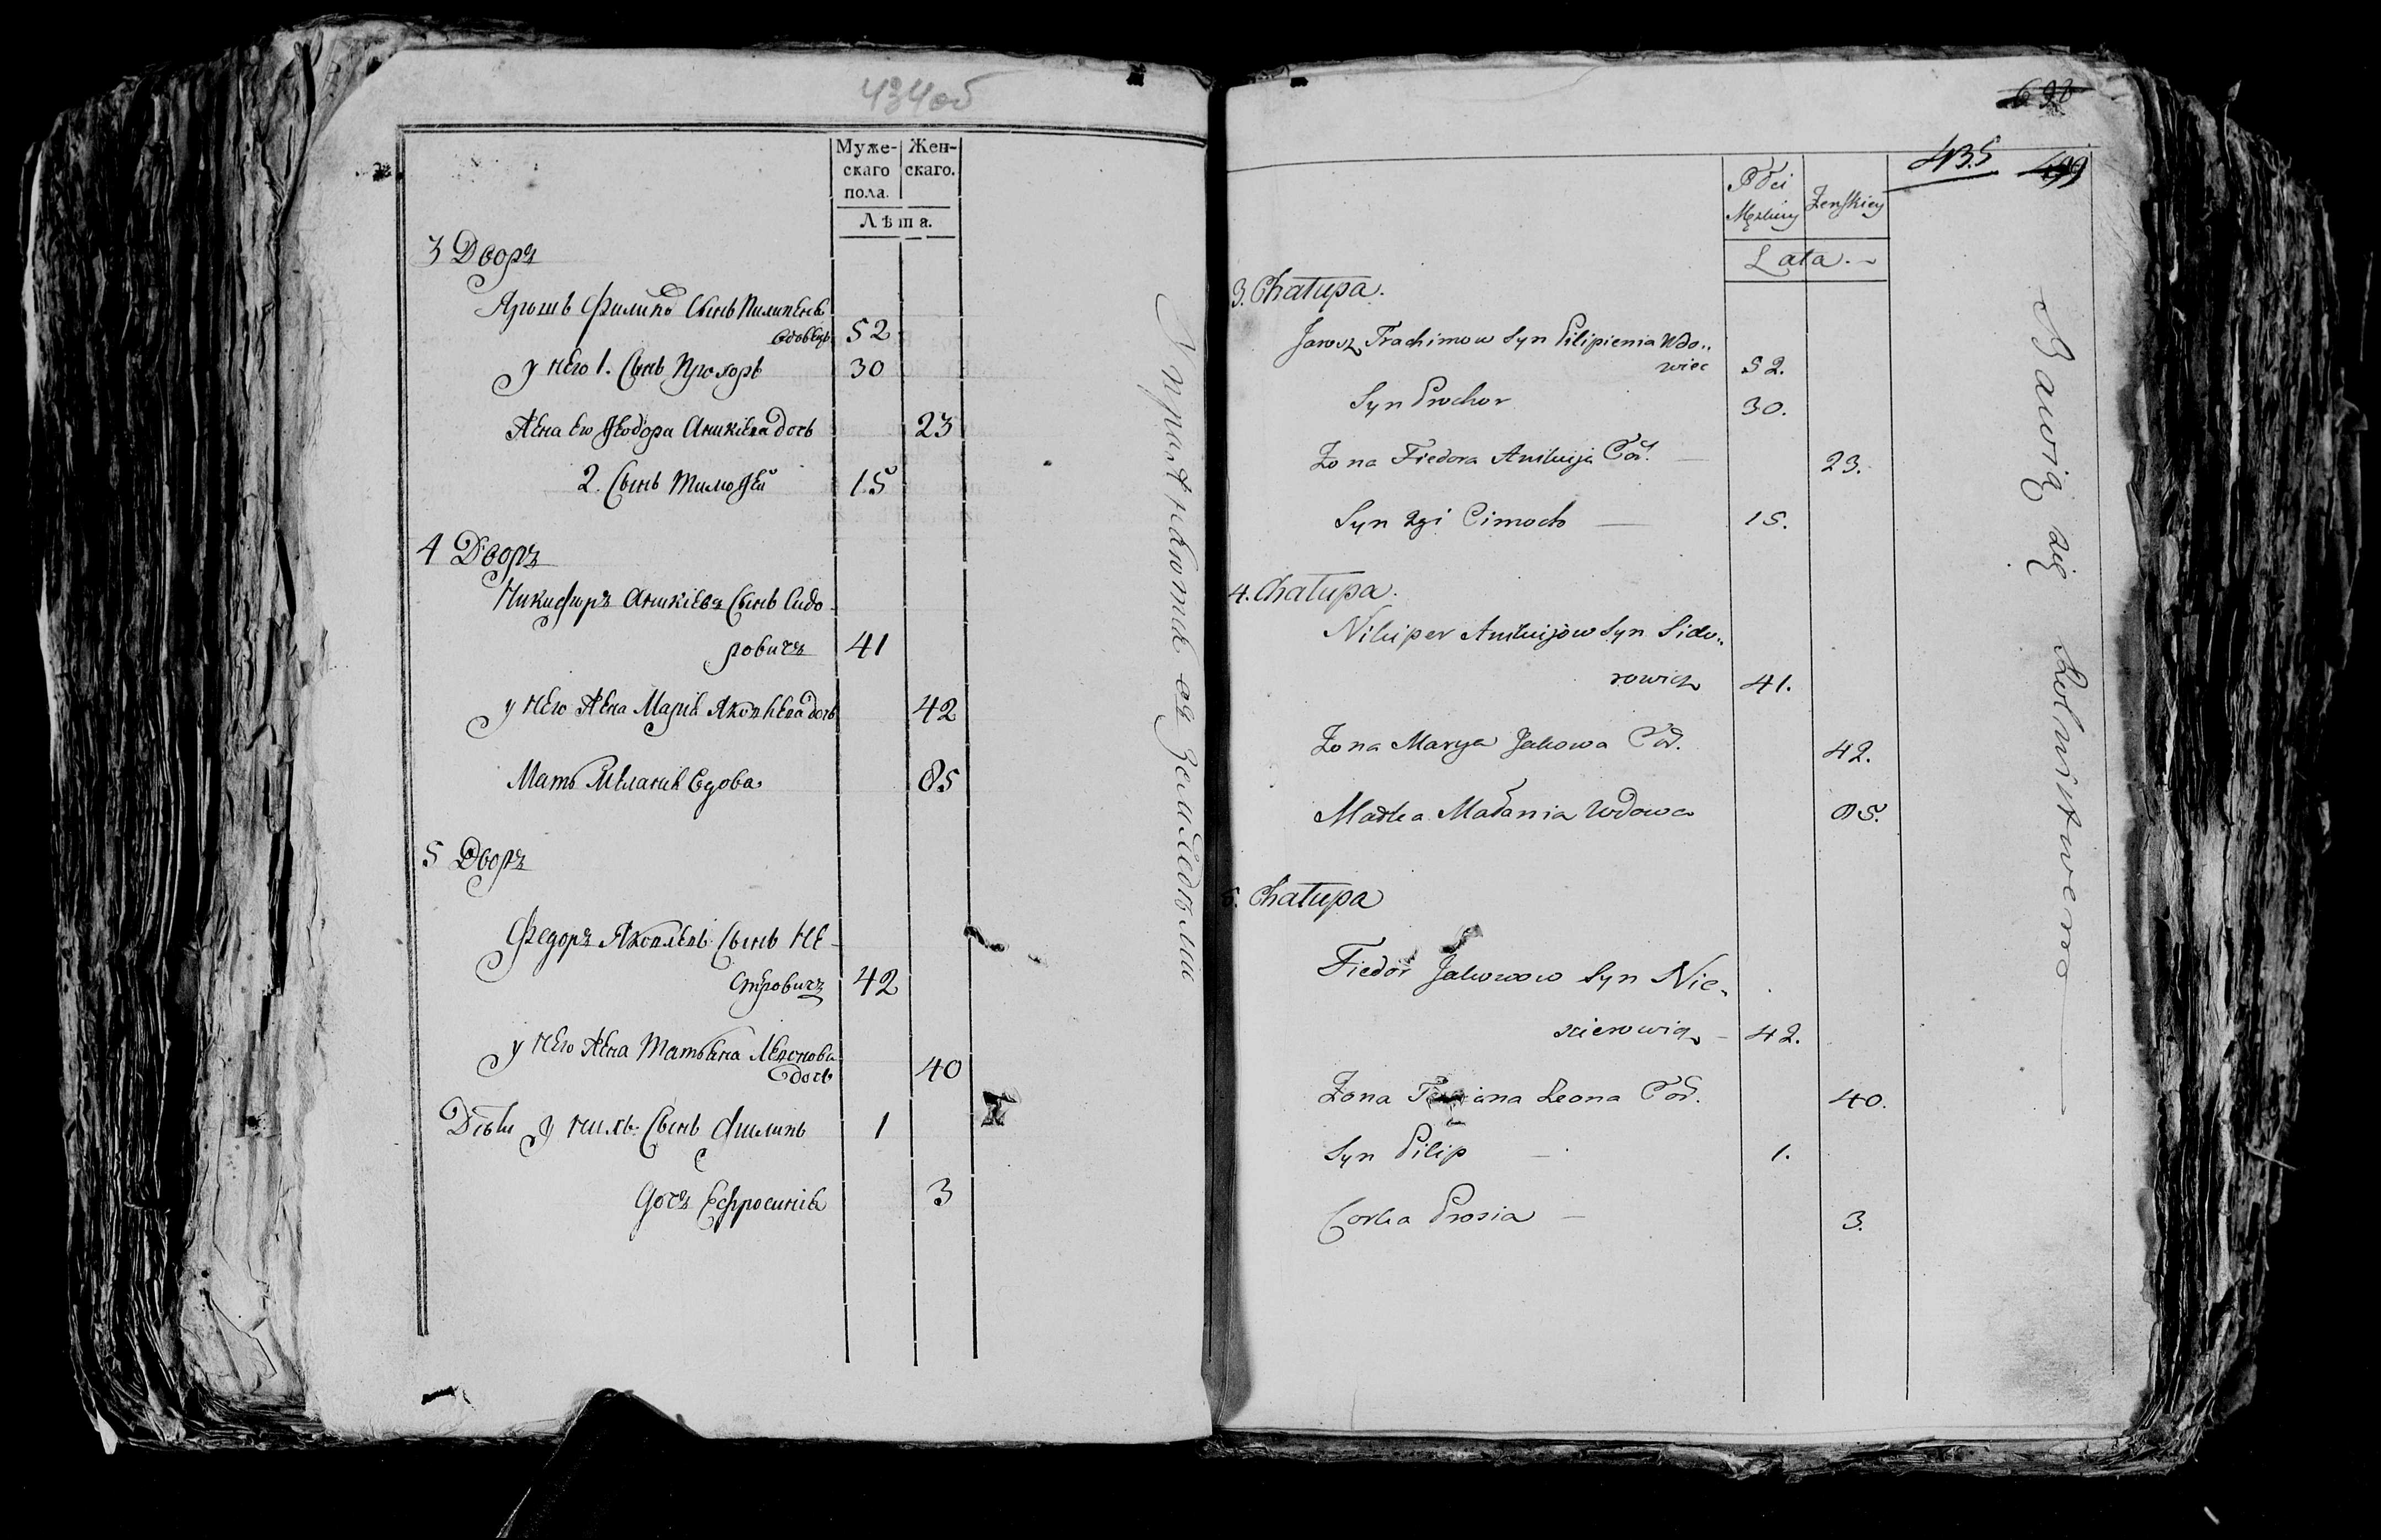 434об
Муже- Жен-
скаго скаго.
пола.
Лѣта.
3 Дворъ
Ярошъ Филипо Сынъ Пилипень
вдовецъ 52
у него 1. Сынъ Прохоръ 30
Жена его Ѳеодора Аникіева дочь 23
2. Сынъ Тимоѳей 15
4 Дворъ
Никифоръ Аникіевъ Сынъ Сидо-
ровичъ 41
у него Жена Марія Яковлева дочь 42
Мать Меланія вдова 85
5 Дворъ
Федоръ Яковлевъ Сынъ Не-
стеровичъ 42
у него Жена Татьяна Леонова
дочь 40
Дѣти у нихъ Сынъ Филипъ 1
дочь Ефросинія 3
Упражняются въ Земледѣліи
435 499
Płci
Męskiey Żenskiey
Lata.
3. Chałupa.
Jarosz Trachimow Syn Pilipienia Wdo„
wiec 52.
Syn Prochor 30.
Żona Fiedora Anikieja Cór. 23.
Syn 2gi Cimoch 15.
4. Chałupa.
Nikiper Anikijow Syn Sido„
rowicz 41.
Żona Marya Jakowa Cór. 42.
Matka Małania Wdowa 85.
5. Chałupa
Fiedor Jakowow Syn Nie„
scierowicz 42.
Żona Leona Cór. 40.
Syn Pilip 1.
Corka Prosia 3.
Bawią się Rolnictwem